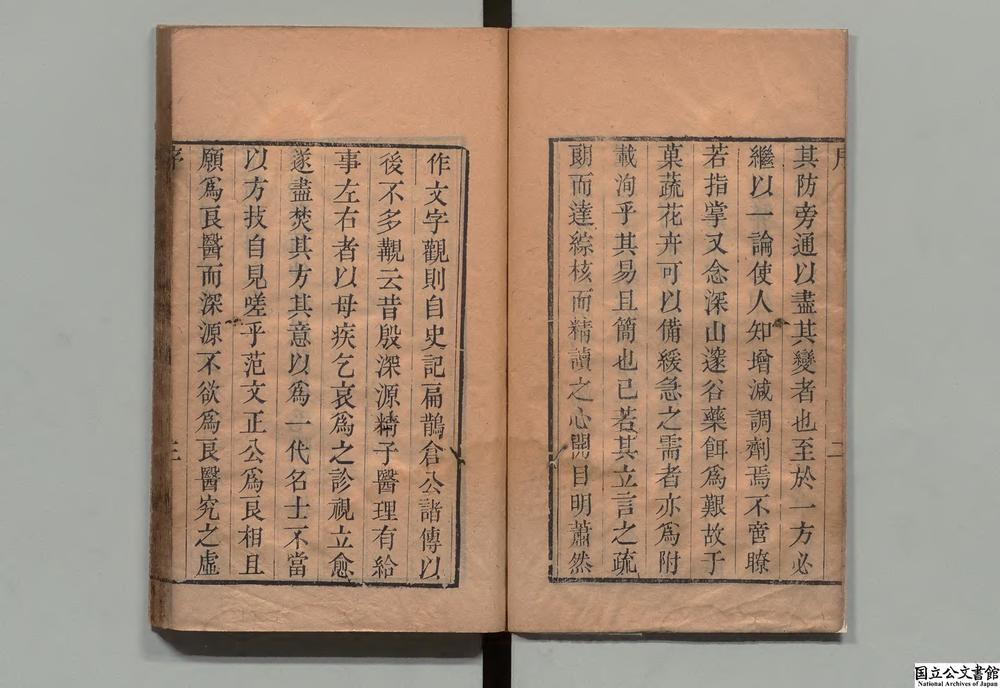 其防旁通以盡其變者也至於一方必
繼以一論使人知增減調劑焉不啻瞭
若指掌又念深山邃谷藥餌爲艱故于
菓蔬花卉可以備緩急之需者亦爲附
載洵乎其易且簡也已若其立言之疏
朗而達綜核而精讀之心開目明蕭然
作文字觀則自史記扁鵲倉公諸傳以
後不多覯云昔殷深源精于醫理有給
事左右者以母疾乞哀爲之診視立愈
遂盡焚其方其意以爲一代名士不當
以方技自見嗟乎范文正公爲良相且
願爲良醫而深源不欲爲良醫究之虛
序
三
国立公文書館
National Archives of Japan